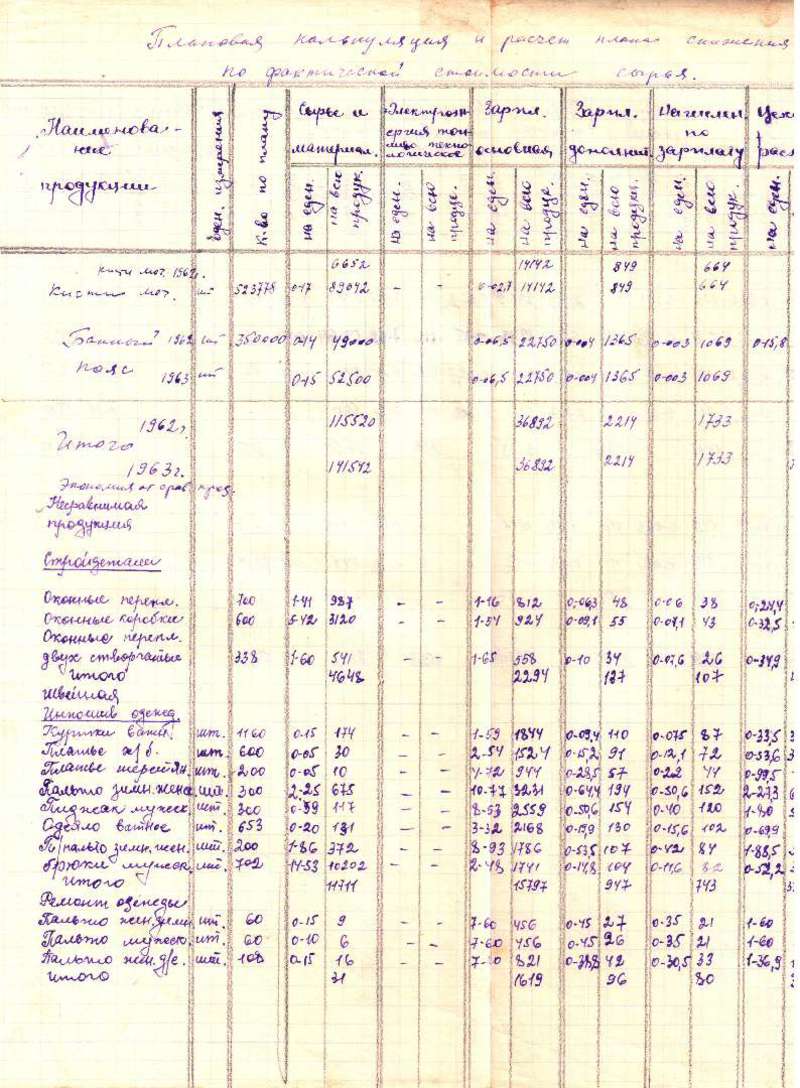 Плановая калькуляция и расчет плана снижения
по фактической стоимости сырья.
Наименование продукции | един. измерения | К-во по плану | Сырье и материал. | Электроэнергия топливо технологическое | Зарпл. основная | Зарпл. дополнит. | Начислен. по зарплату | Цех расх
на един. | на всю продук. | на един. | на всю продук. | на един. | на всю продук. | на един. | на всю продукц. | на един. | на всю продук. | на един.
кисти мот. 1962г. 6652 14142 849 664
Кисти мот. шт 523778 0-17 89042 - - 0-02,7 14142 849 664
Банный 1962 шт 350000 0-14 49000 0-06,5 22750 0-004 1365 0-003 1069 0-15,8
пояс
1963 шт 0-15 52500 0-06,5 22750 0-004 1365 0-003 1069
1962г. 115520 36892 2214 1733
Итого
1963г. 141542 36892 2214 1733
Экономия от срав. прод.
Несравнимая
продукция
Стройдетали
Оконные перепл. 700 1-41 987 - - 1-16 812 0-06,3 48 0-06 38 0-24,4
Оконные коробки 600 5-42 3120 - - 1-54 924 0-09,1 55 0-07,1 43 0-32,5
Оконные перепл.
двух створчатые 338 1-60 541 - - 1-65 558 0-10 34 0-07,6 26 0-34,9
Итого 4648 2294 137 107
Швейная
Инпошив одежд.
Куртки ватн. шт. 1160 0-15 174 - - 1-59 1844 0-09,4 110 0-075 87 0-33,5
Платье х/б. шт. 600 0-05 30 - - 2-54 1524 0-15,2 91 0-12,1 72 0-53,6
Платье шерстян. шт. 200 0-05 10 - - 4-72 944 0-28,5 57 0-22 44 0-99,5
Пальто зимн. женс. шт. 300 2-25 675 - - 10-77 3231 0-64,4 194 0-50,6 152 2-27,3
Пиджак мужск. шт. 300 0-39 117 - - 8-53 2559 0-50,6 154 0-40 120 1-80
Одеяло ватное шт. 653 0-20 131 - - 3-32 2168 0-19,9 130 0-15,6 102 0-69,9
П/пальто зимн. жен. шт. 200 1-86 372 - - 8-93 1786 0-53,5 107 0-42 84 1-88,5
Брюки мужск. шт. 702 14-53 10202 - - 2-48 1741 0-14,8 104 0-11,6 82 0-52,2
Итого 11711 15797 947 743
Ремонт одежды
Пальто жен. зимн шт. 60 0-15 9 - - 7-60 456 0-45 27 0-35 21 1-60
Пальто мужск. шт. 60 0-10 6 - - 7-60 456 0-45 26 0-35 21 1-60
Пальто жен. д/с. шт. 108 0-15 16 - - 821 0-38,8 42 0-30,5 33 1-36,9
Итого 31 1619 96 80